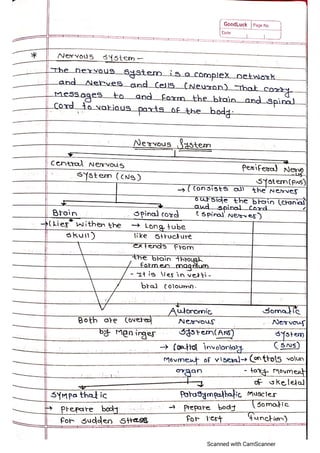 GoodLuck Page No.
Date
* Nervous System -
The nervous system is a complex network
and Nerves and Cells (Neuron) That carry
Messages to and Form the brain and spinal
Cord to various parts of the body.
Nervous System
Central Nervous
System (CNS)
Periferal Nerve
System (PNS)
→ (onsists all the Nerves
outside the brain (cranial
and spinal cord
( spinal Nerves)
Brain
→ (Lies withen the
skull)
Spinal cord
→ Long tube
like structure
extends From
the brain through
Formen magnum
- It is lies in verti-
bral coloumn.
Both are covered
by Meninges
Autoromic
Nervous
System (ANS)
→ Control involontary
Movment of visceral
organ
Somatic
Nervous
System
(SNS)
→ Controls volun
- tary Movment
of skeletal
Muscles
(somatic
function)
Sympathatic
→ Prepare body
For sudden stress
Parasympathatic
→ Prepare body
For rest
Scanned with CamScanner